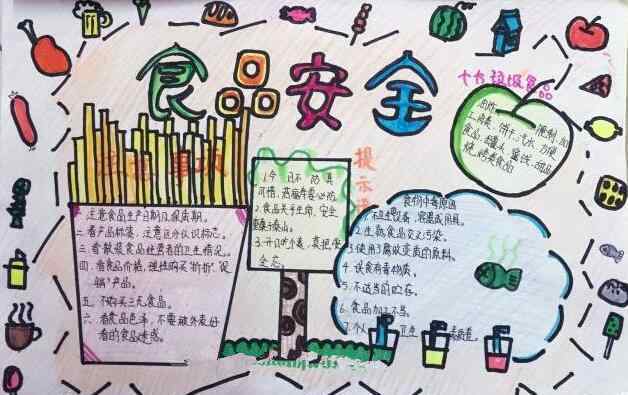 食品安全
十大垃圾食品
油炸、腌制、加
工肉类、饼干、汽水、方便
食品、罐头、蜜饯、甜品
烧烤类食品
注意事项
提示语
一、注意食品生产日期及保质期。
二、看产品标签,注意区分认识标志。
三、看散装食品经营者的卫生情况。
四、看食品价格,理性购买"打折"、"促
销"产品。
五、不购买三无食品。
六、看食品色泽,不要被外表好
看的食品迷惑。
1.今日不防具
可惜,疾病缠
2.食品关乎生命,安全
重于泰山。
3.开口吃个素,莫把
全忘。
食物中毒原因
1.不卫生设备、容器或用具。
2.生熟食品交叉污染。
3.使用了腐败变质的原料。
4.误食有毒物质。
5.不适当的贮存。
6.食品加工不当。
7.个人卫生